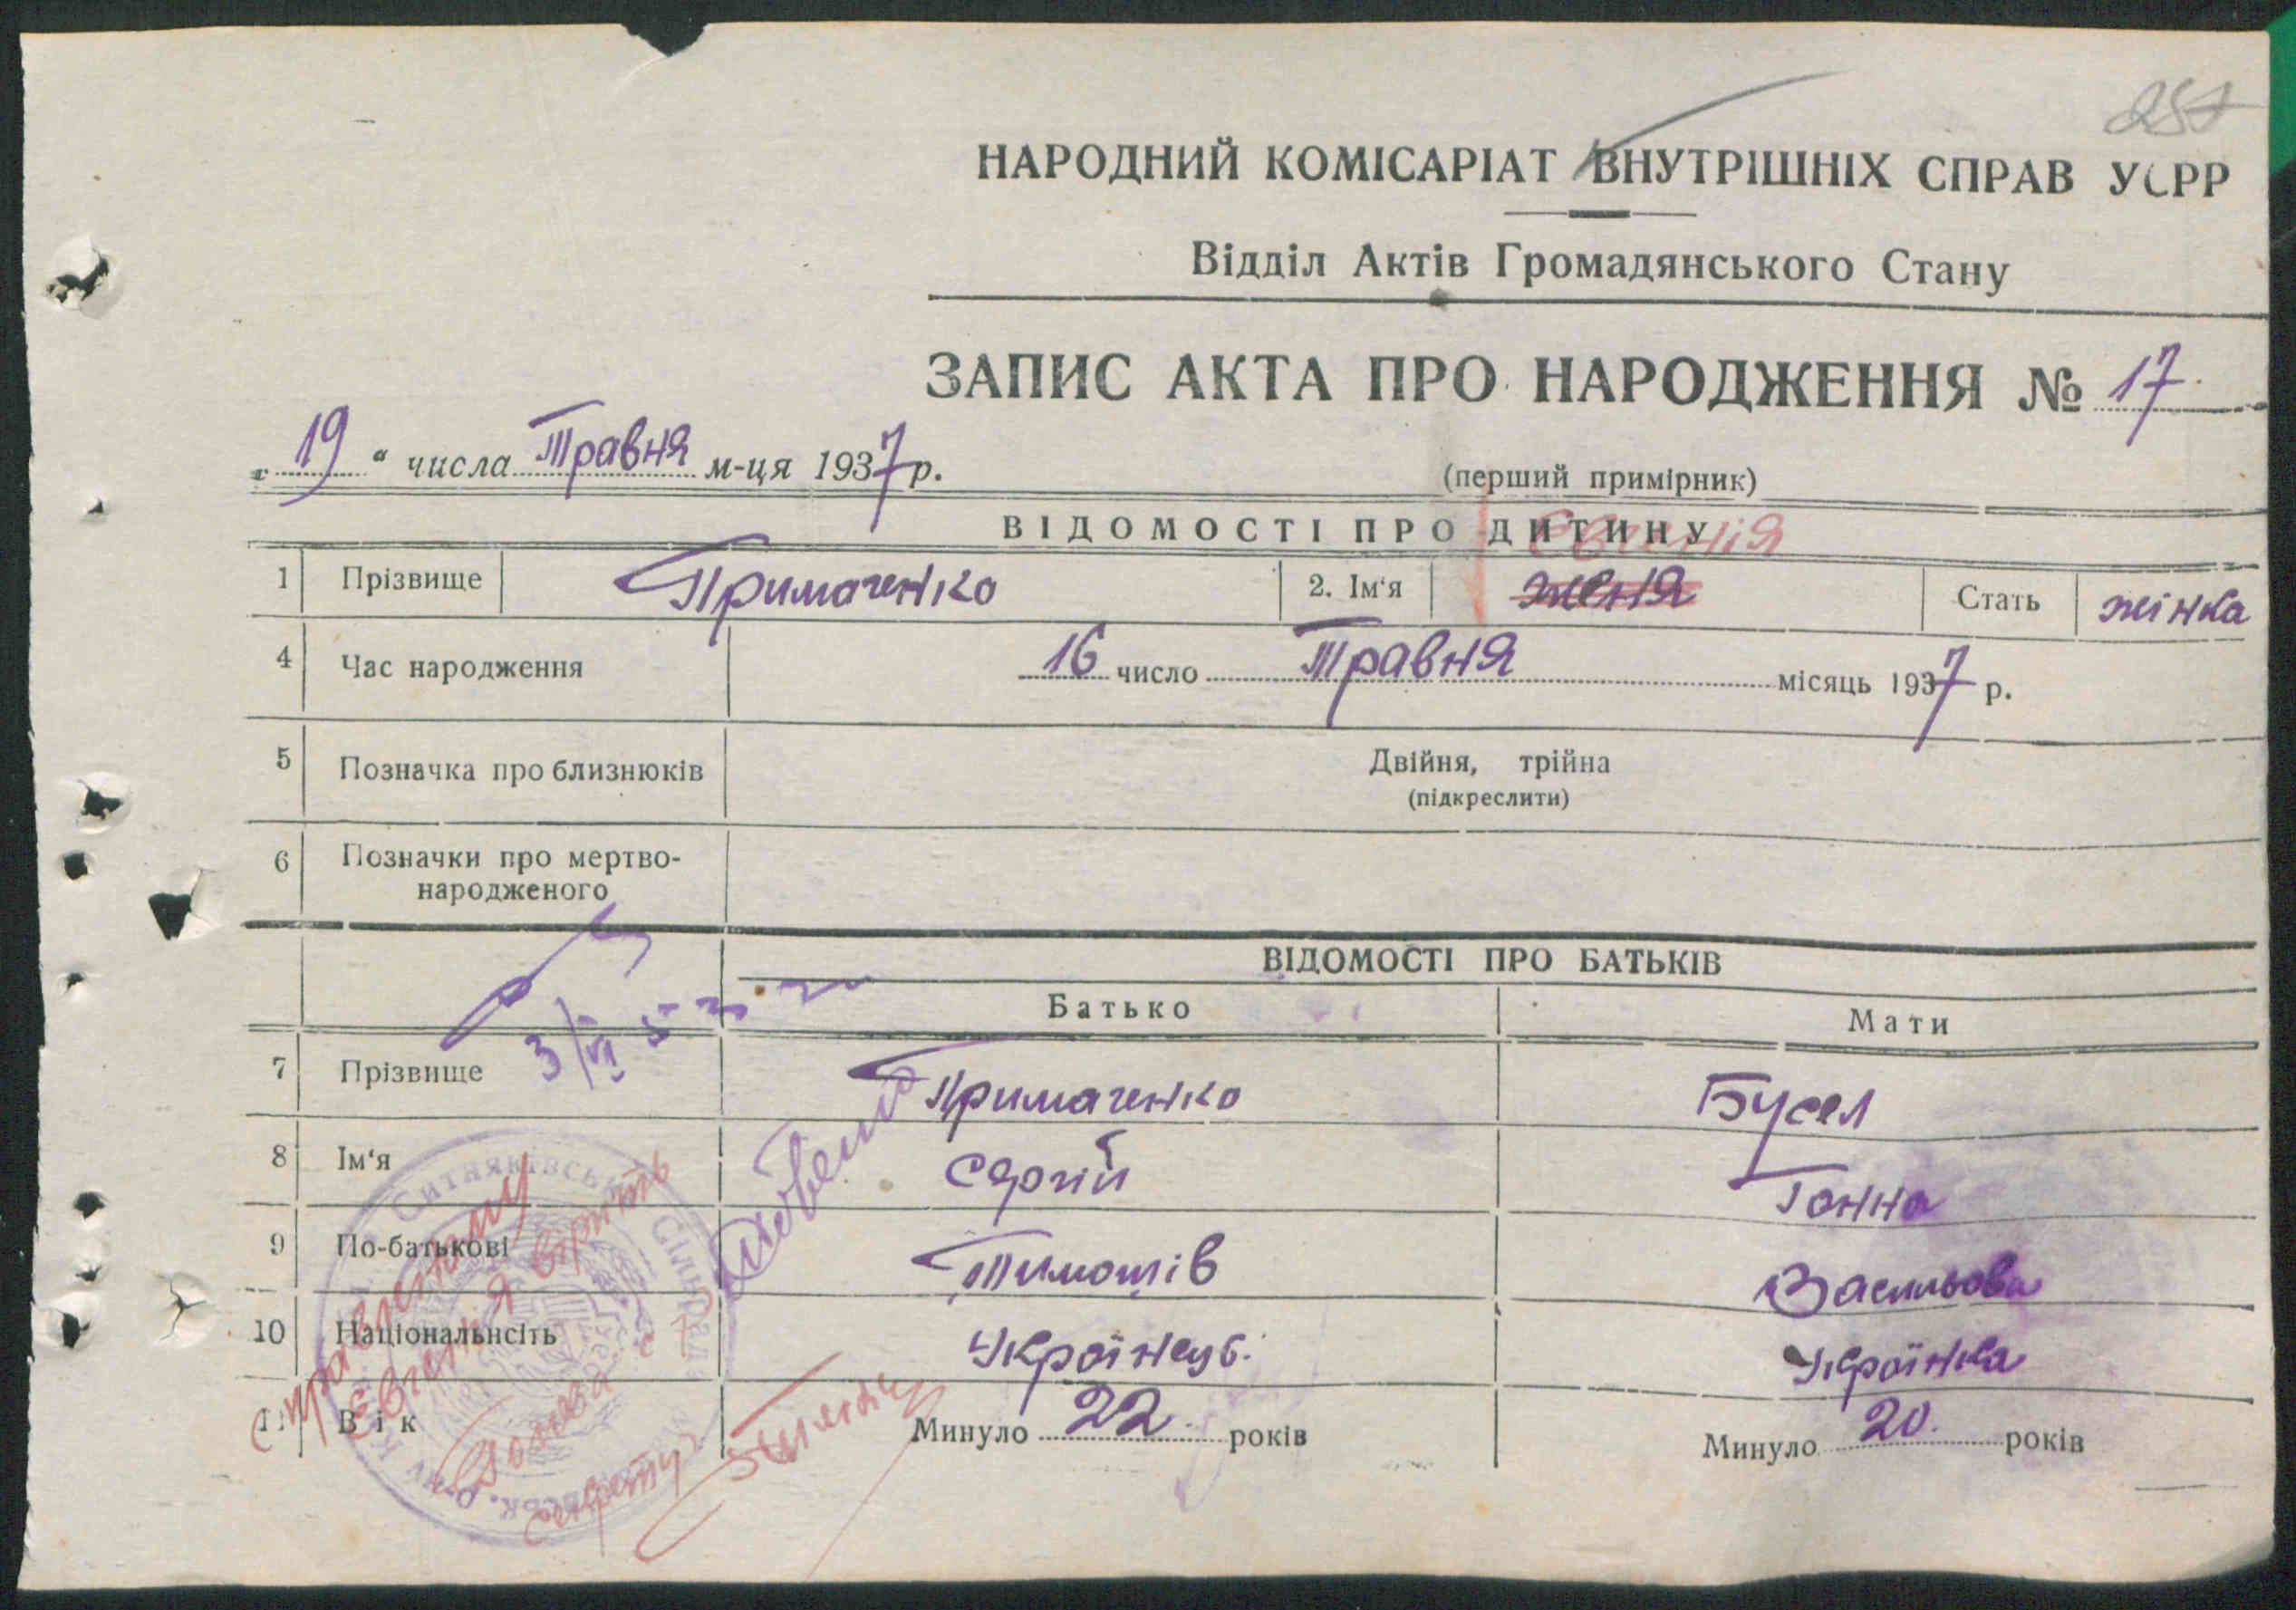 257
НАРОДНИЙ КОМІСАРІАТ ВНУТРІШНІХ СПРАВ УСРР
Відділ Актів Громадянського Стану
ЗАПИС АКТА ПРО НАРОДЖЕННЯ № 17
„ 19 “ числа Травня м-ця 1937 р.
(перший примірник)
ВІДОМОСТІ ПРО ДИТИНУ
Євгенія
1 Прізвище Примаченко 2. Ім‘я Женя Стать жінка
4 Час народження 16 число Травня місяць 1937 р.
5 Позначка про близнюків Двійня, трійна
(підкреслити)
6 Позначки про мертво-
народженого
ВІДОМОСТІ ПРО БАТЬКІВ
Батько Мати
3/VI
7 Прізвище Примаченко Бусел
8 Ім‘я Сергій Ганна
9 По-батькові Тимошів Васильова
10 Національнсіть Українець. Українка
11 Вік Минуло 22 років Минуло 20. років
Ситняківська Сільрада
Євгенія вірить
Голова с/р
Секретар